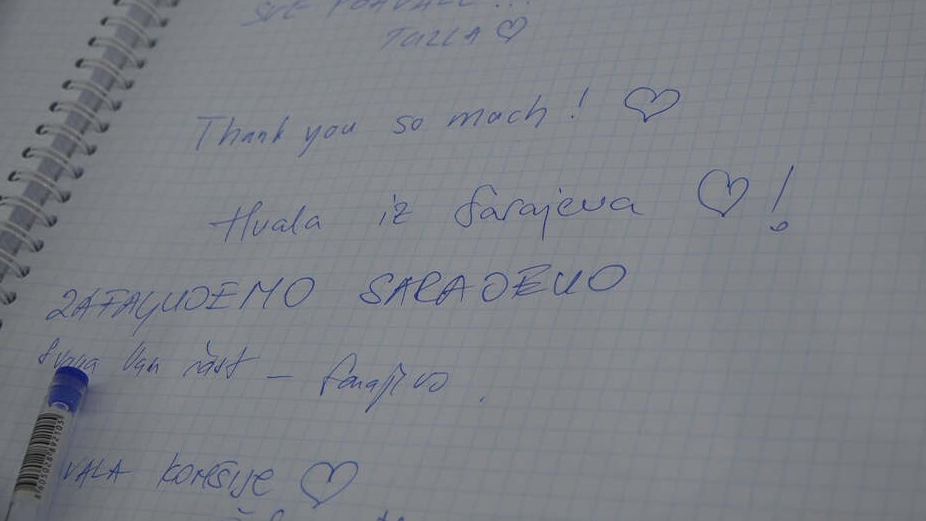 SVE POHVALE...
TUZLA ♡
Thank you so mach! ♡
Hvala iz Sarajeva ♡!
ZAFALJUJEMO SARAJEVO
Svaka Vam čast – Sarajevo.
VALA KOMŠIJE ♡